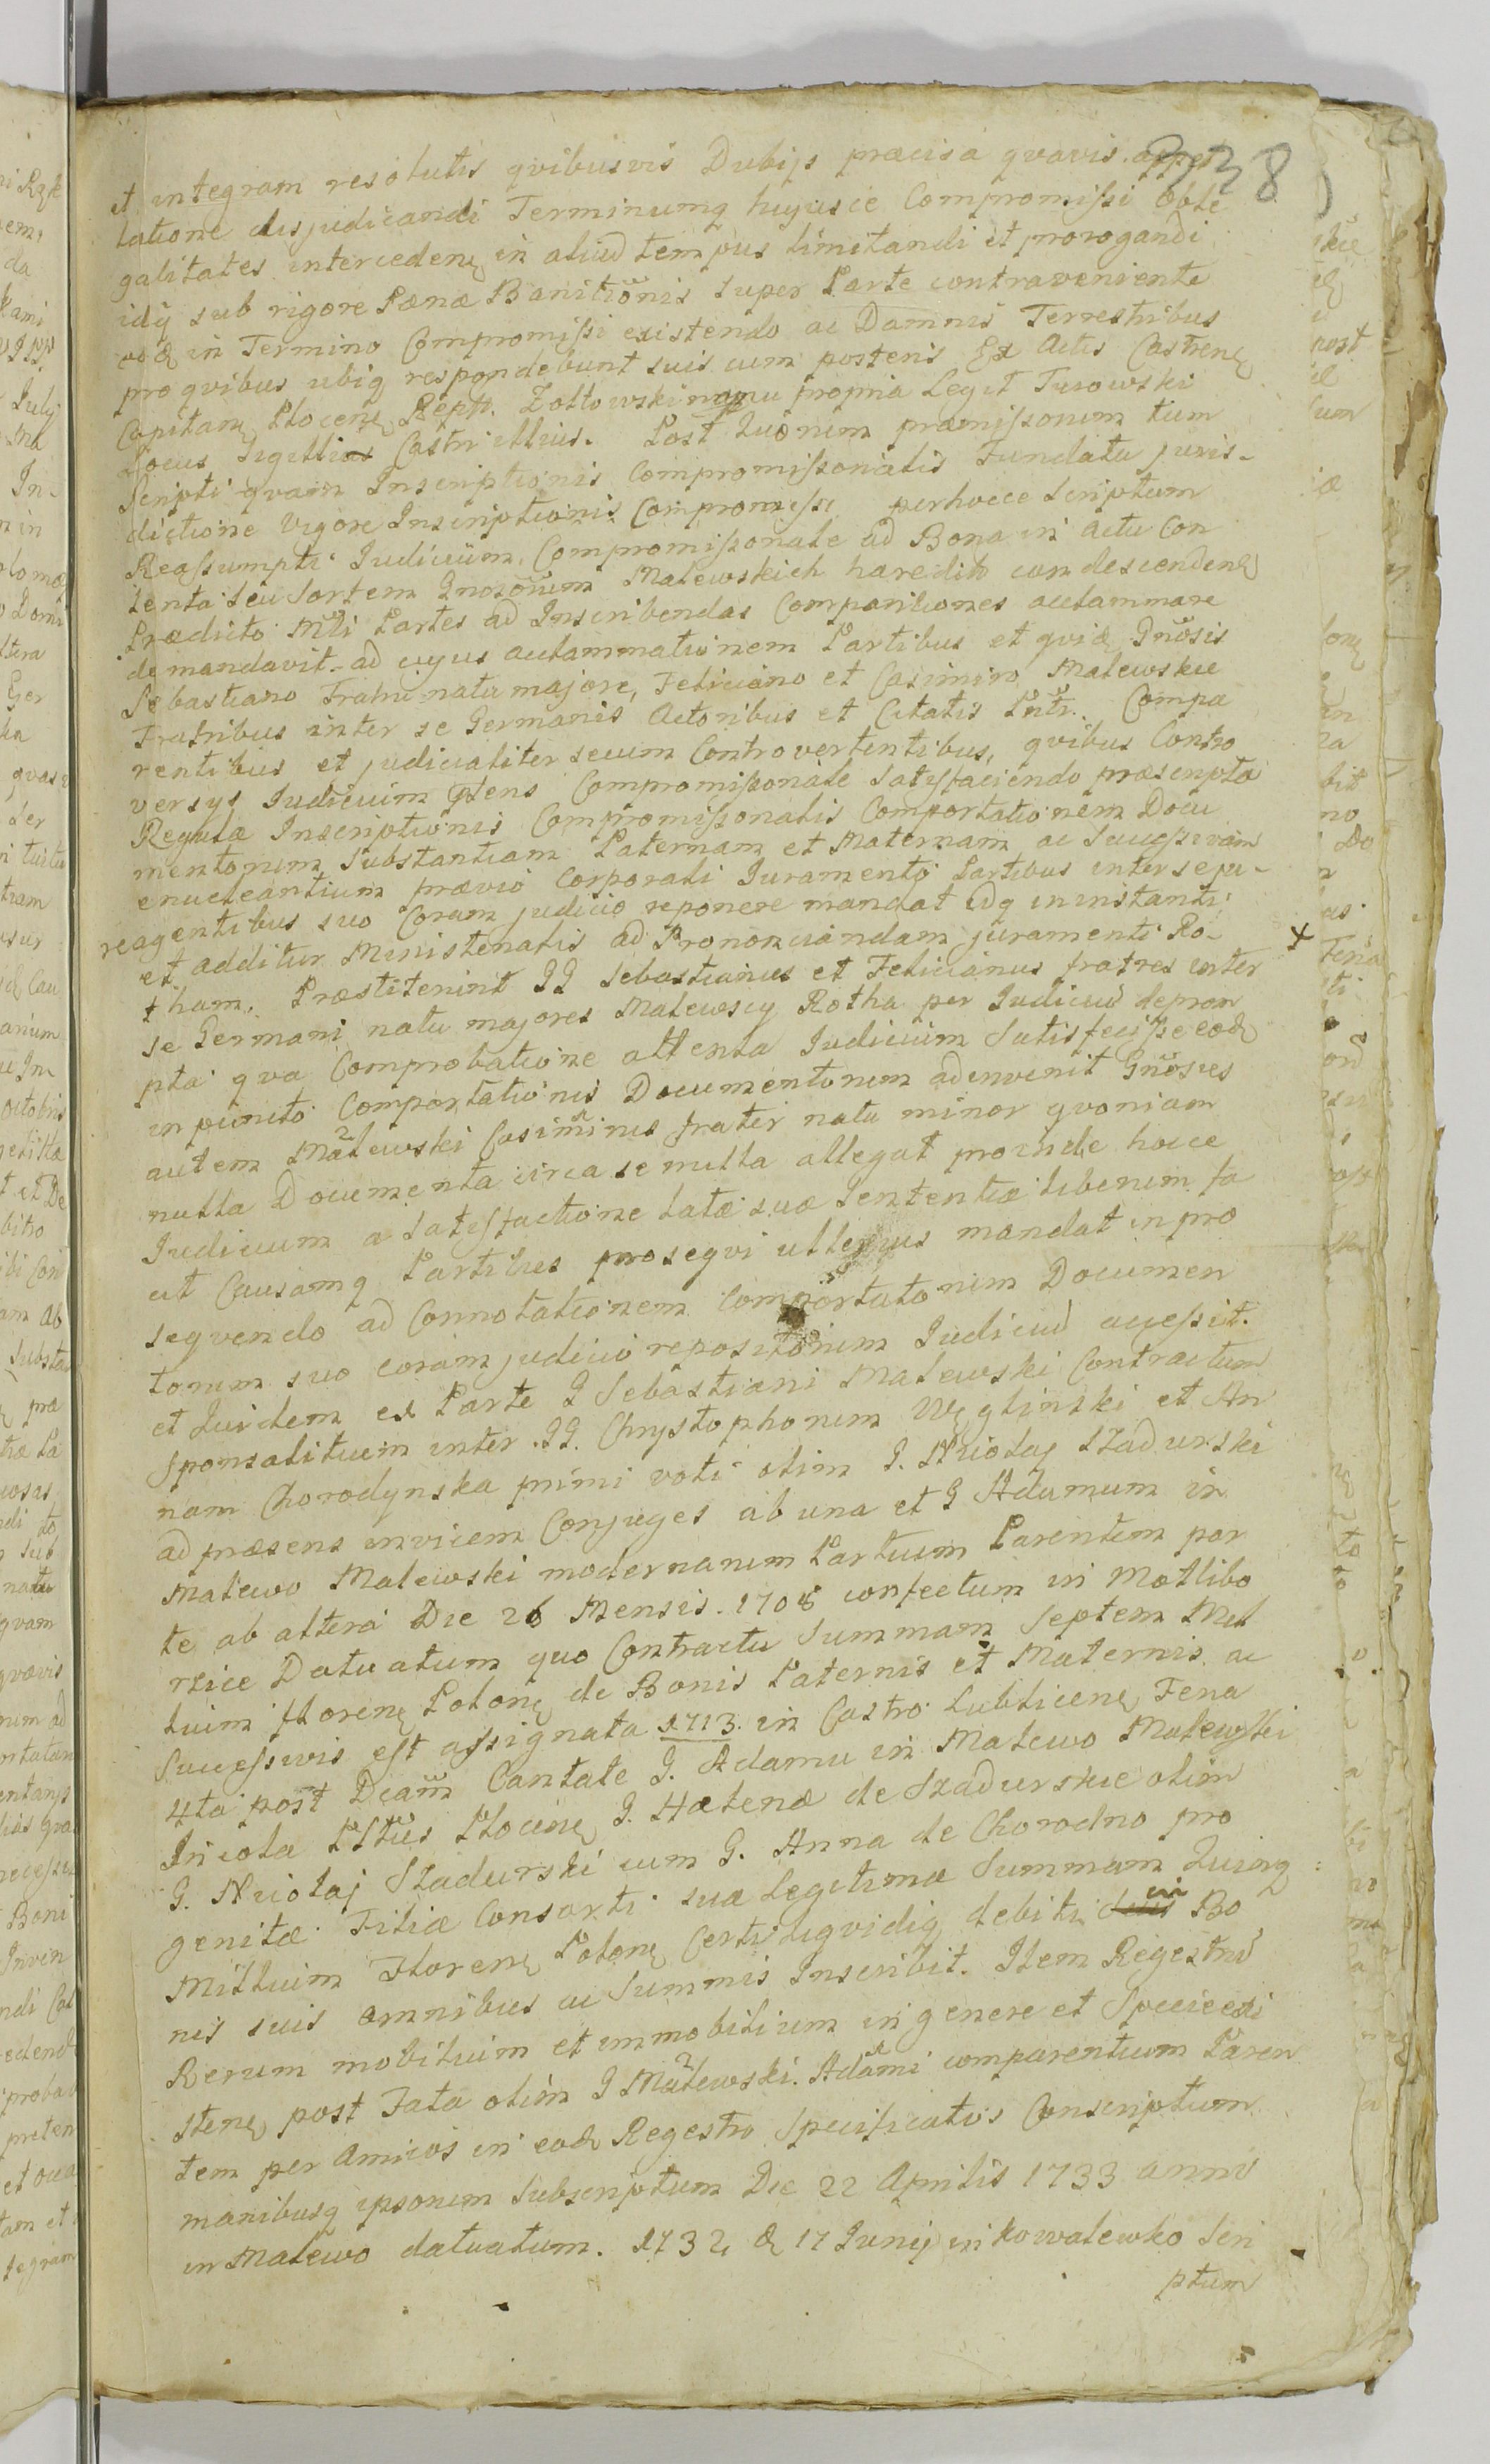 338
et integram resolutis qvibusvis Dubijs præcisa qvavis appel
latione disjudicandi Terminumq hujusce Compromissi oble
galitates intercedenę in aliud tempus limitandi et prorogandi
idq sub rigore Pænæ Banitionis super Parte contraveniente
eod in Termino Compromissi existendo ac Damnis Terrestribus
pro qvibus ubiq respondebunt suis cum posteris Ex Actis Castrenę
Capitanę Plocenę Rept. Żołtowski manu propria Legit Turowski
Locus Sigilli Castri illius. Post quorum præmissorum tum
Scripti qvam Inscriptionis Compromissorialis Fundata juris-
dictione vigore Inscriptionis Compromissi perhocce scriptum
Reassumpti Iudicium Compromissoriale ad Bona in Actu Con
tenta seu Sortem Gnosorum Malewskich hæredit condescendenę
Prædicto Mrli Partes ad Inscribendas Comparitiones acclammare
demandavit. ad cujus acclammationem Partibus et qvid Gnosis
Sebastiano Fratri natu majore, Feliciano et Casimiro Malewskie
Fratribus inter se Germanis Actoribus et Citatis Pntr. Compa
rentibus et judicialiter secum Controvertentibus, qvibus Contro
versys Iudicium ptens Compromissoriale satisfaciendo præscripta
Regula Inscriptionis Compromissorialis Comportationem Docu
mentorum Substantiam Paternam et Maternam ac Successivam
enucleantium prævio Corporali Iuramento Partibus inter se ju-
reagentibus suo Coram judicio reponere mandat idq in instanti
et additur Ministerialis ad Pronunciandam juramenti Ro-
tham. Præstiterint GG Sebastianus et Felicianus fratres inter
se Germani natu majores Malewscy Rotha per Iudiciu deprom
pta qva Comprobatione attenta Iudicium Satisfecisse eod
in puncto Comportationis Documentorum adinvenit Gnosus
autem Malewski Casimirus frater natu minor qvoniam
nulla Documenta circa se nulla allegat proinde hocce
Iudicium a Satisfactione latæ suæ Sententiæ liberum fa
cit Causamq Partibus prosegvi ulterius mandat in pro
seqvendo ad Connotationem Comportatorum Documen
torum suo coram judicio repositorum Iudiciu accessit.
et Quidem ex Parte G Sebastiani Malewski Contractum
Sponsalitium inter GG. Chrystophorum Węglinski et An
nam Chorodynska primi voti olim G. Nicolaj Szadurski
ad præsens invicem Conjuges ab una et G Adamum in
Malewo Malewski modernarum Partium Parentem par
te ab altera Die 26 Mensis. 1708 confectum in Motlibo
rzice Datuatum quo Contractu Summam Septem Mil
lium florenę Polonę de Bonis Paternis et Maternis ac
Successivis est assignata 1713. in Castro Lublicenę Feria
4ta post Dcam Cantate G. Adamu in Malewo Malewski
Incola Pltus Plocenę G. Hælenæ de Szadurskie olim
G. Nicolaj Szadurski cum G. Anna de Chorodno pro
genitæ Filiæ Consorti suæ Legitimæ Summam Quinq
Millium Florenę Polonę Certi liqvidiq debiti in Bo
nis suis omnibus ac Summis Inscribit. Item Regestru
Rerum mobilium et immobilium in genere et Specie exi
stenę post Fata olim G Malewski Adami comparentium Paren
tem per Amicos in eod Regestro Specificatos Conscriptum
manibusq ipsorum Subscriptum Die 22 Aprilis 1733 anni
in Malewo datuatum. 1732 d 17 Iunij in Kowalewko Scri
ptum